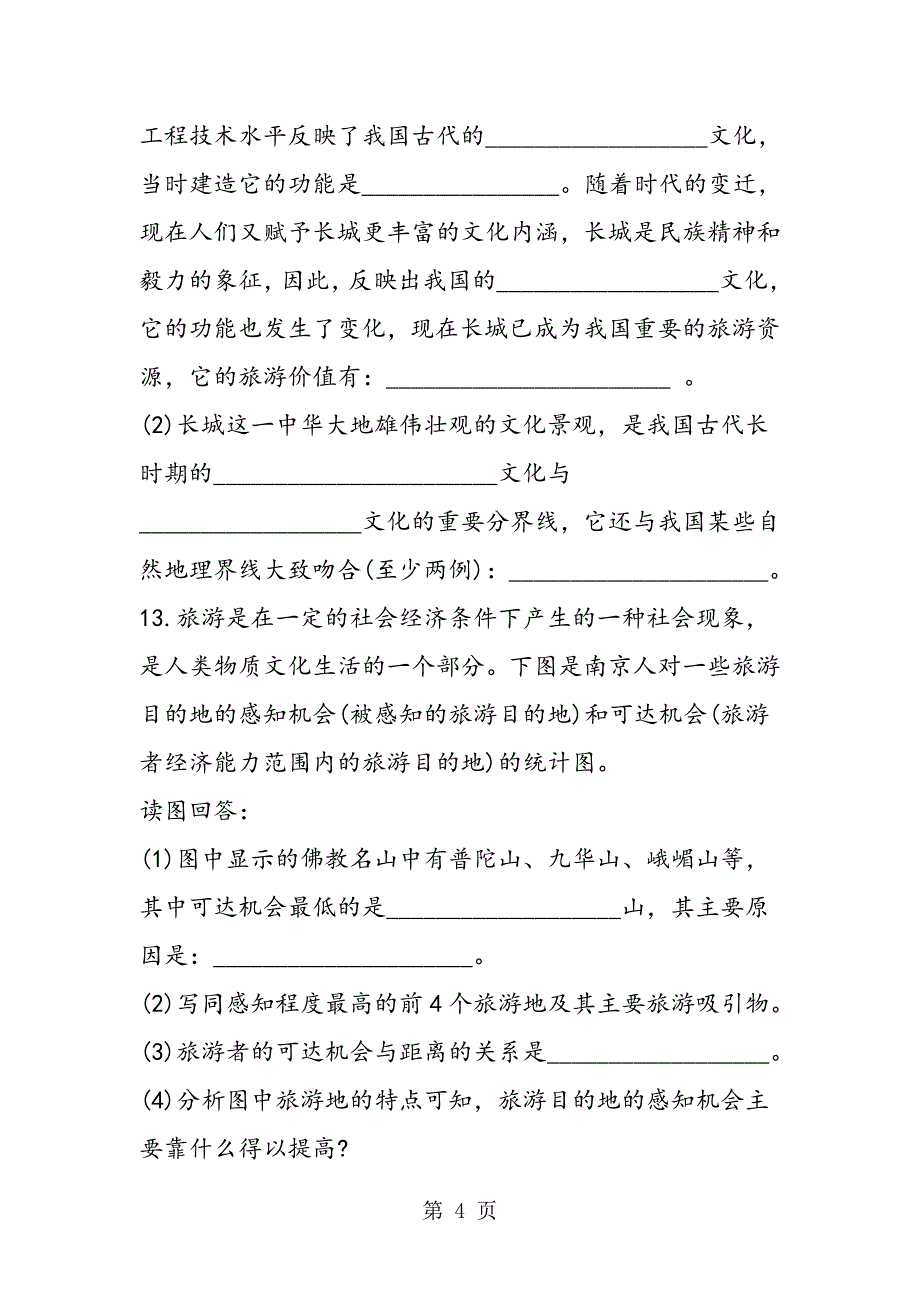 工程技术水平反映了我国古代的__________________文化，
当时建造它的功能是________________。随着时代的变迁，
现在人们又赋予长城更丰富的文化内涵，长城是民族精神和
毅力的象征，因此，反映出我国的__________________文化，
它的功能也发生了变化，现在长城已成为我国重要的旅游资
源，它的旅游价值有：_______________________ 。
(2)长城这一中华大地雄伟壮观的文化景观，是我国古代长
时期的_______________________文化与
__________________文化的重要分界线，它还与我国某些自
然地理界线大致吻合(至少两例)：_____________________。
13.旅游是在一定的社会经济条件下产生的一种社会现象，
是人类物质文化生活的一个部分。下图是南京人对一些旅游
目的地的感知机会(被感知的旅游目的地)和可达机会(旅游
者经济能力范围内的旅游目的地)的统计图。
读图回答：
(1)图中显示的佛教名山中有普陀山、九华山、峨嵋山等，
其中可达机会最低的是___________________山，其主要原
因是：_____________________。
(2)写同感知程度最高的前4个旅游地及其主要旅游吸引物。
(3)旅游者的可达机会与距离的关系是__________________。
(4)分析图中旅游地的特点可知，旅游目的地的感知机会主
要靠什么得以提高?
第 4 页